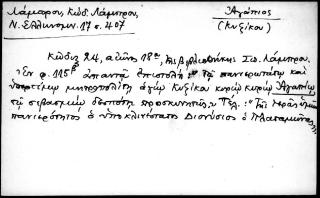 Λάμπρου, Κώδ. Λάμπρου,
Ν. Ἑλληνομν. 17 σ. 407
Ἀγάπιος
(Κυζίκου)
Κώδιξ 24, αἰῶνος 18ου, τῆς βιβλιοθήκης Σπ. Λάμπρου.
Ἐν φ. 115α ἀπαντᾷ ἐπιστολὴ "τῷ πανιερωτάτῳ καὶ
ὑπερτίμῳ μητροπολίτῃ ἁγίῳ Κυζίκου κυρίῳ κυρίῳ Ἀγαπίῳ
τῷ σεβασμίῳ δεσπότῃ προσκυνητῶς". Τέλ.: "Τῆς ἱερᾶς
πανιερότητος ὁ ὑποκλινέστατος Διονύσιος ὁ Πλαταμῶνος